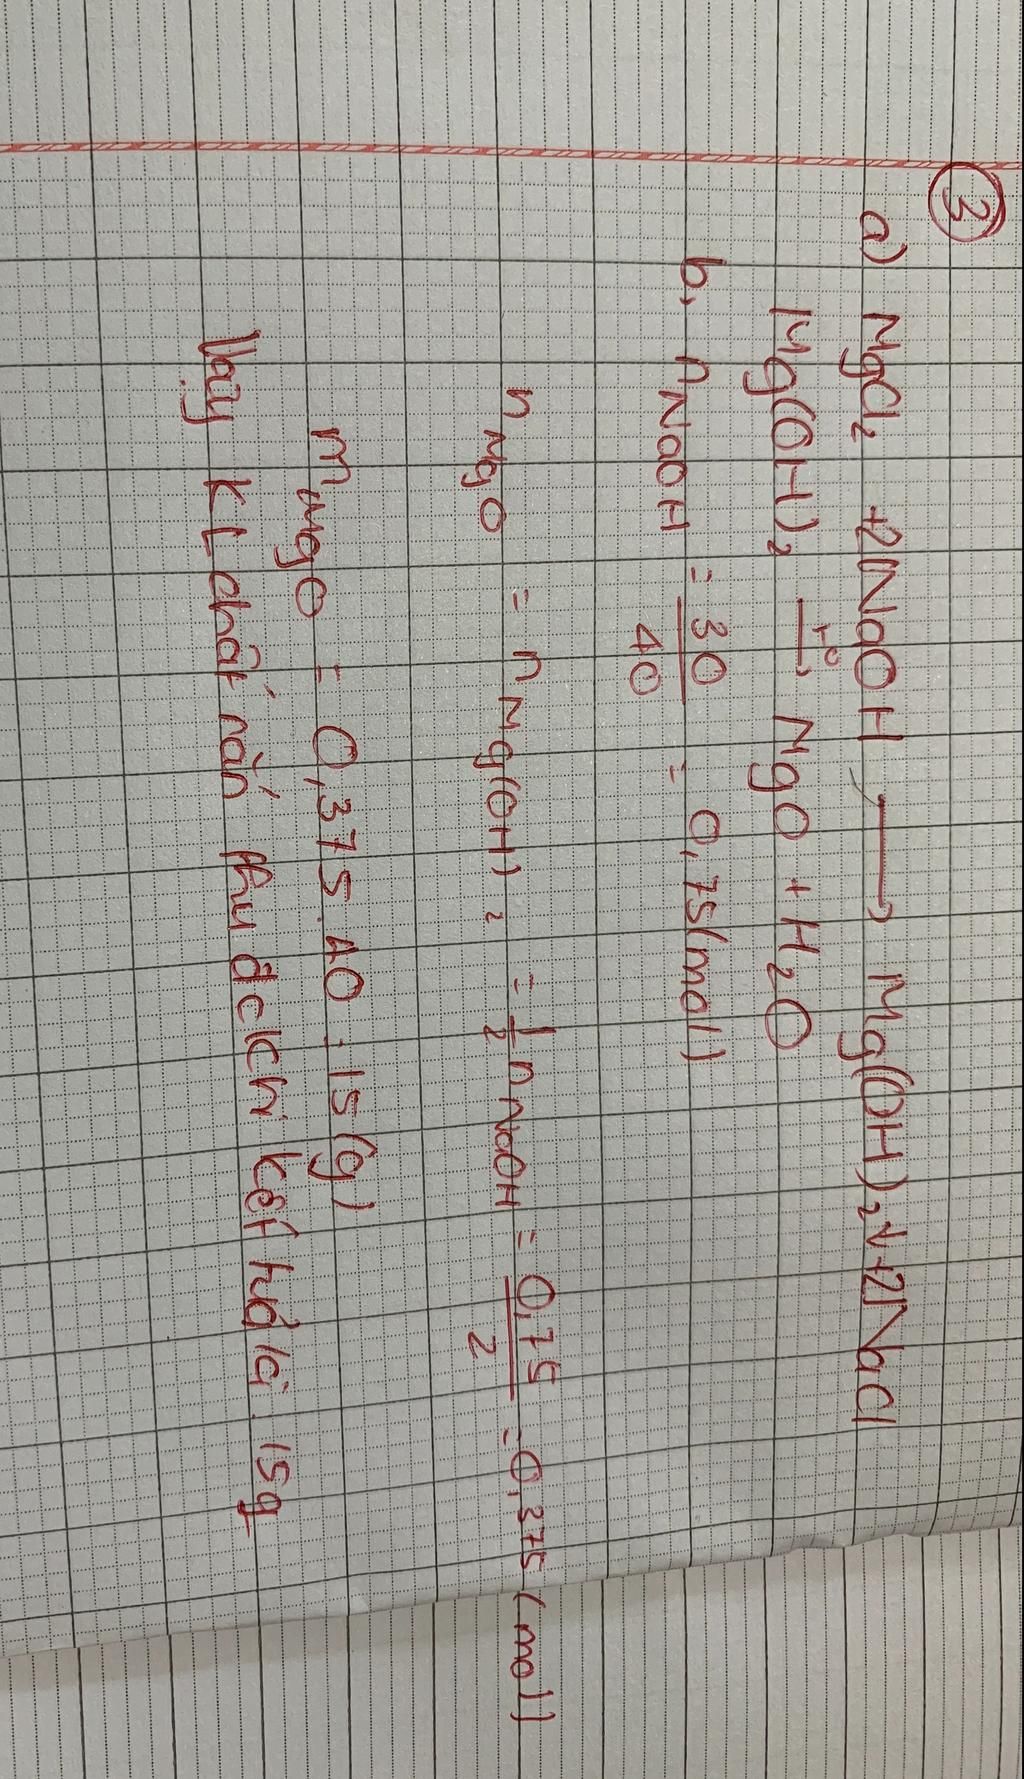 3
a) MgCl₂ + 2NaOH ⟶ Mg(OH)₂↓ + 2NaCl
Mg(OH)₂ —t⁰→ MgO + H₂O
b, nNaOH = 30/40 = 0,75(mol)
nMgO = nMg(OH)₂ = 1/2 nNaOH = 0,75/2 = 0,375 (mol)
mMgO = 0,375.40 = 15(g)
Vậy KL chất rắn thu đc khi kết tủa là 15g